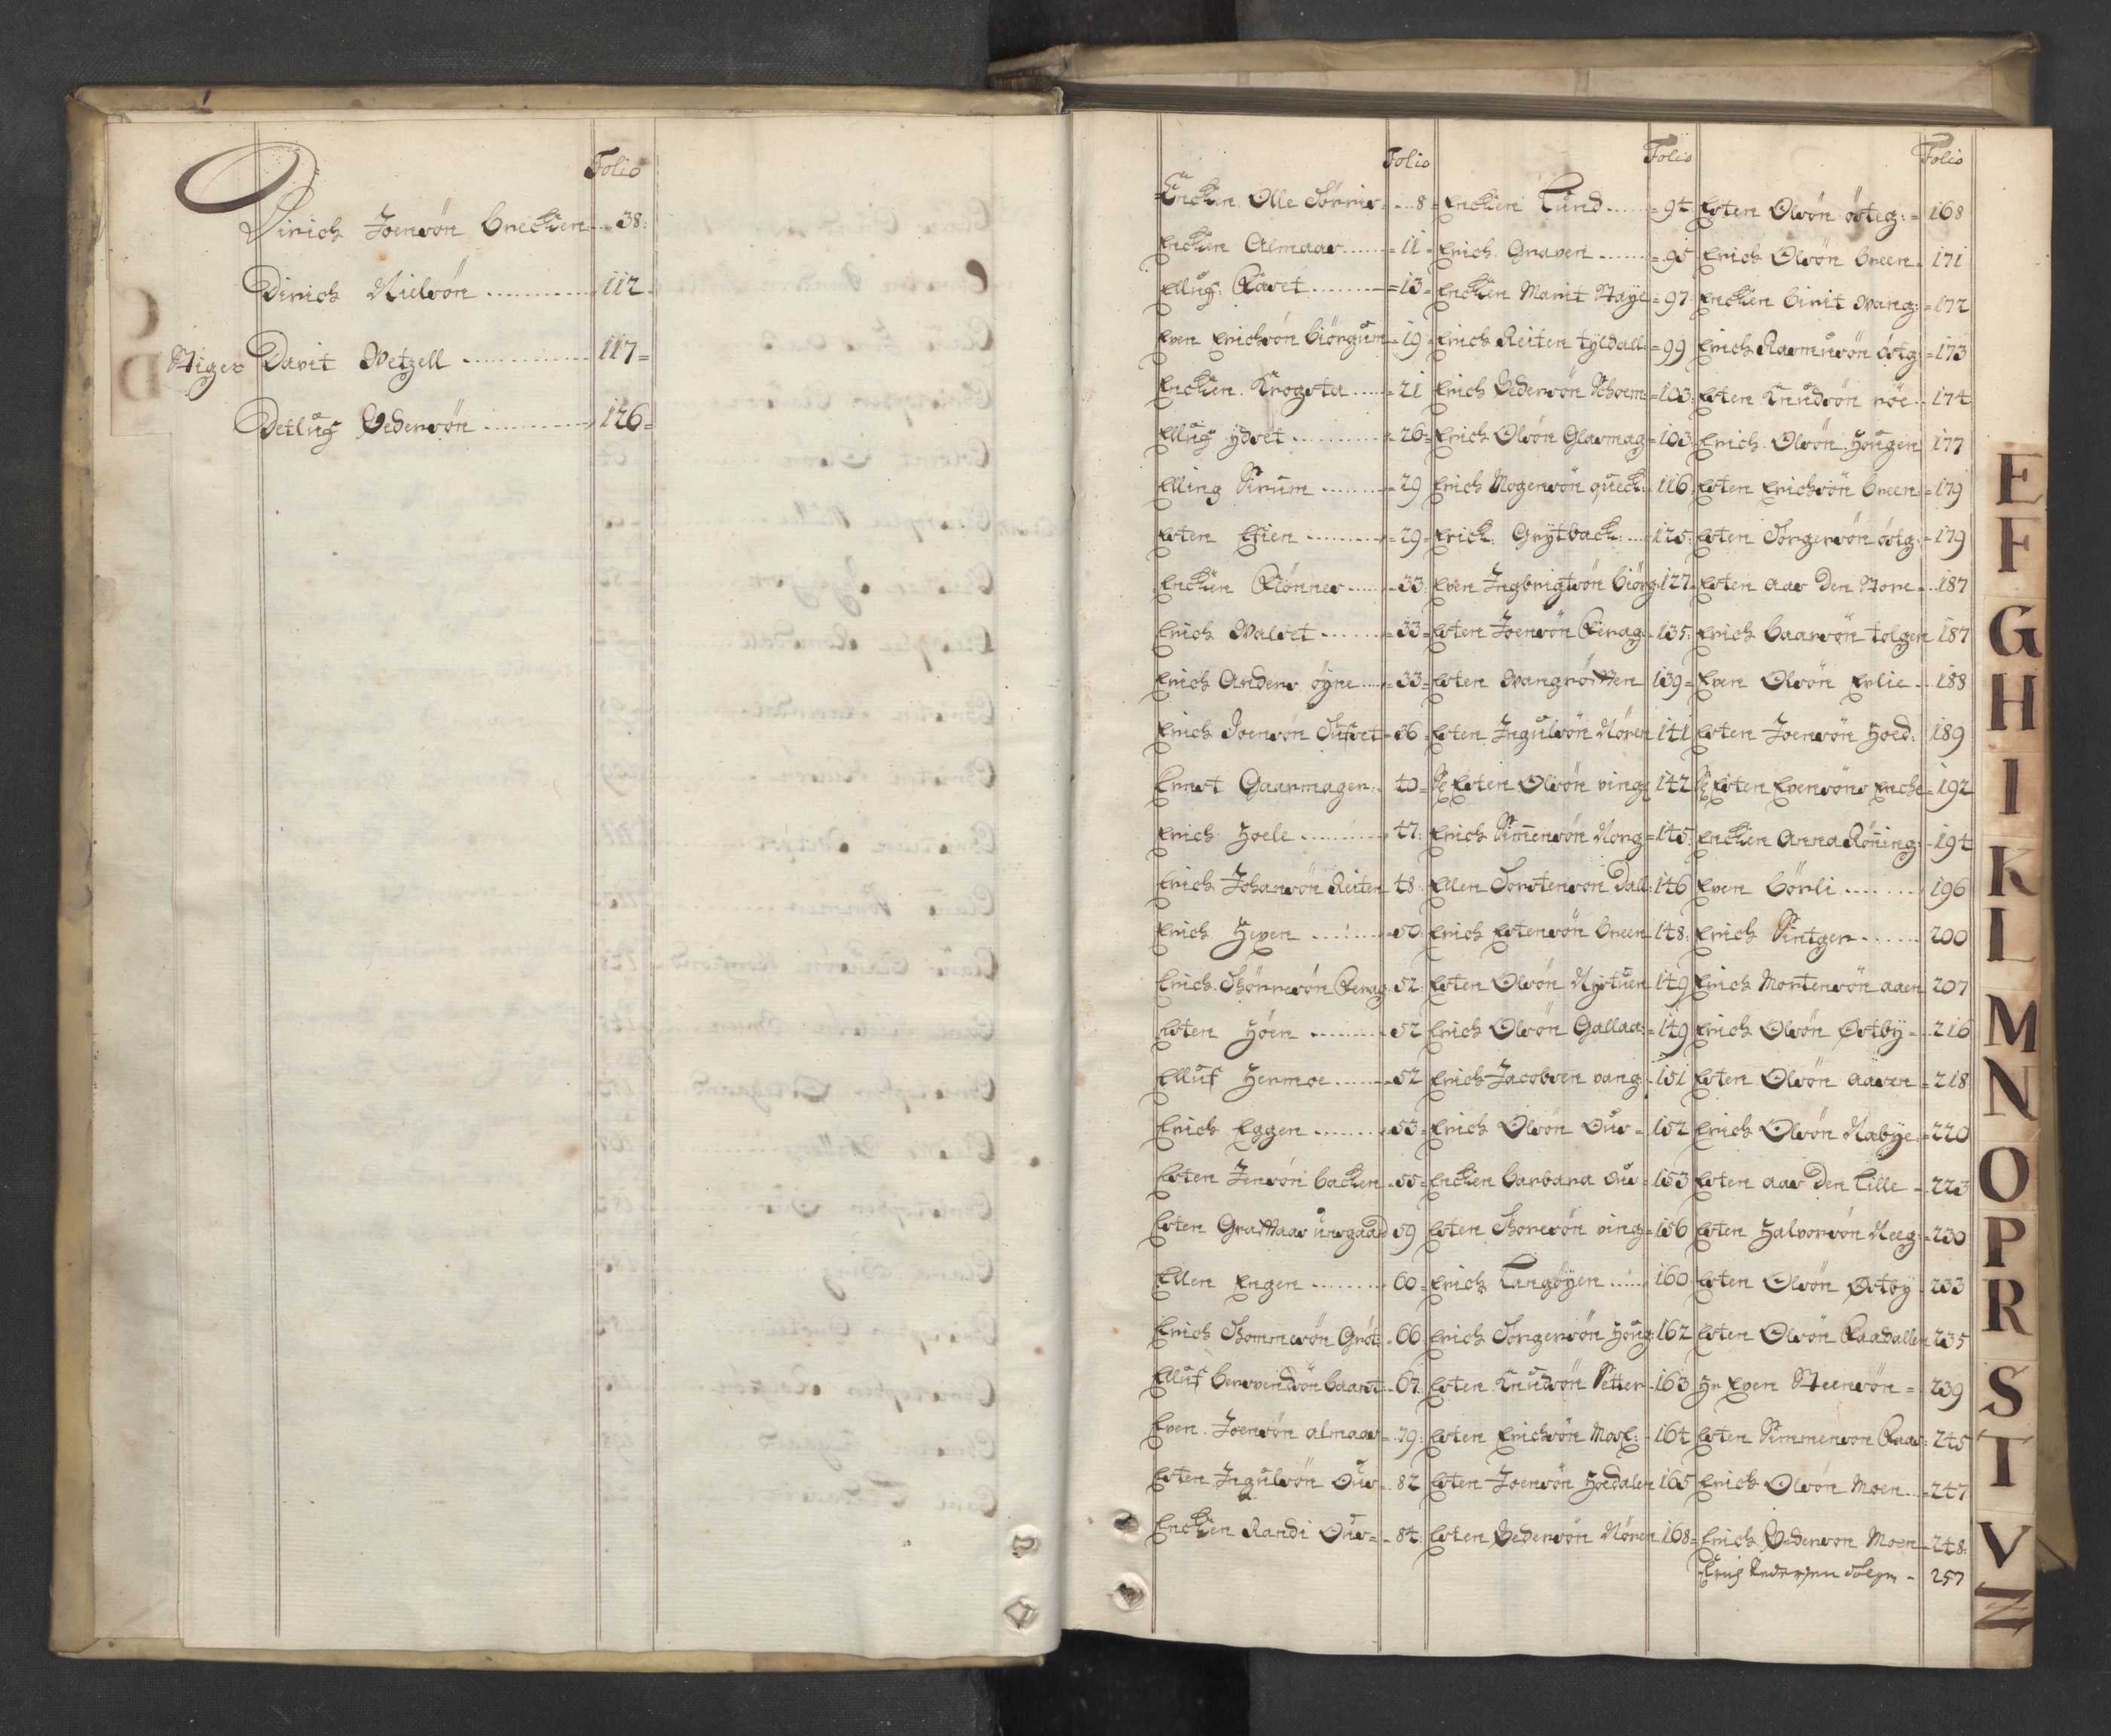 Folio
Dirich Joensön Brecken 38
Dirich Nielsön 112
Stiger Davit Wetzell 117
Detluf Pedersön 126
Folio
Enckien Olle 8
Enckien Almaas 11
Elluf Raset 13
Even Erichsön Biörgum 19
Enckien Krogsta 21
Elluf ydset 26
Elling Sirum 29
Esten Efien 29
Enckien Rönnes 33
Erich Walset 33
Erich Anders öyne 33
Erich Joensön Tufset 36
Ernst Gaarmager 40
Erich Hoele 47
Erich Johansön Reiten 48
Erich Heven 50
Erich Rönnesön 52
Esten Höen 52
Elluf Hermoe 52
Erich Eggen 53
Esten Jensön backen 55
Esten Graffaas ursgaad 59
Ellen Engen 60
Erich Thommesön Gröt 66
Elluf Bersvendsön baardt 67
Even Joensön almaas 79
Esten Ingulsön Ous 82
Enckien Randi Ous 84
Folio
Enckien Lund 94
Erich Graven 95
Enckien Marit Staye 97
Erich Reiten tyldall 99
Erich Pedersön Schoem 103
Erich Olsön Glasmag 103
Erich Mogensön queck 116
Erich Grytback 125
Even Ingbrigtsön Biörg 127
Esten Joensön Renag 135
Esten Wangröften 139
Esten Ingulsön Nören 141
Sl Esten Olsön ving 142
Erich Simensön Norg 145
Ellen Torstenson Dall 146
Erich Estensön breen 148
Esten Olsön Nystuen 149
Erich Olsön Gallaa 149
Erich Jacobsen vang 151
Erich Olsön Ous 152
Enckien barbara Ous 153
Esten Thoresön ving 156
Erich Langöyen 160
Erich Torgersön Houg 162
Esten Knudsön Setter 163
Esten Erichsön Mosl 164
Esten Joensön Hoedalen 165
Esten Pedersön Nören 168
Folio
Esten Olsön östeg 168
Erich Olsön breen 171
Enckien Birit Wang 172
Erich Rasmusön östg 173
Esten Knudsön röe 174
Erich Olsön Hougen 177
Esten Erichsön breen 179
Esten Torgersön östg 179
Esten aas Den Store 187
Erich Baarsön tolgen 187
Even Olsön Evlie 188
Esten Joensön Hoed 189
Sl Esten Evensöns Encke 192
Enckien Anna Röning 194
Even börli 196
Erich Sintger 200
Erich Mortensön aaen 207
Erich Olsön Östby 216
Esten Olsön aasen 218
Erich Olsön Nabye 220
Esten aas Den Lille 223
Esten Halvorsön Neeg 230
Esten Olsön Östby 233
Esten Olsön Raadallen 235
Hr Even Steensön 239
Esten Simmenson Raas 245
Erich Olsön Moen 247
Erich Pederson Moen 248
257
E
F
G
H
I
K
L
M
N
O
P
R
S
T
V
Z